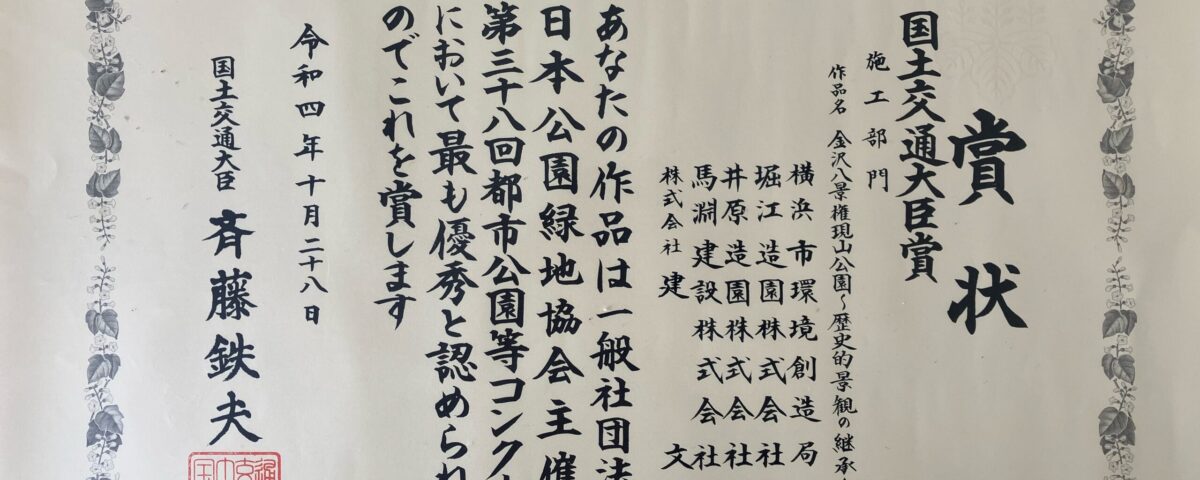 賞状
国土交通大臣賞
施工部門
作品名 金沢八景権現山公園～歴史的景観の継承
横浜市環境創造局
堀江造園株式会社
井原造園株式会社
馬淵建設株式会社
株式会社 建 文
あなたの作品は一般社団法
日本公園緑地協会主催
第三十八回都市公園等コンク
において最も優秀と認められ
のでこれを賞します
令和四年十月二十八日
国土交通大臣 斉藤鉄夫